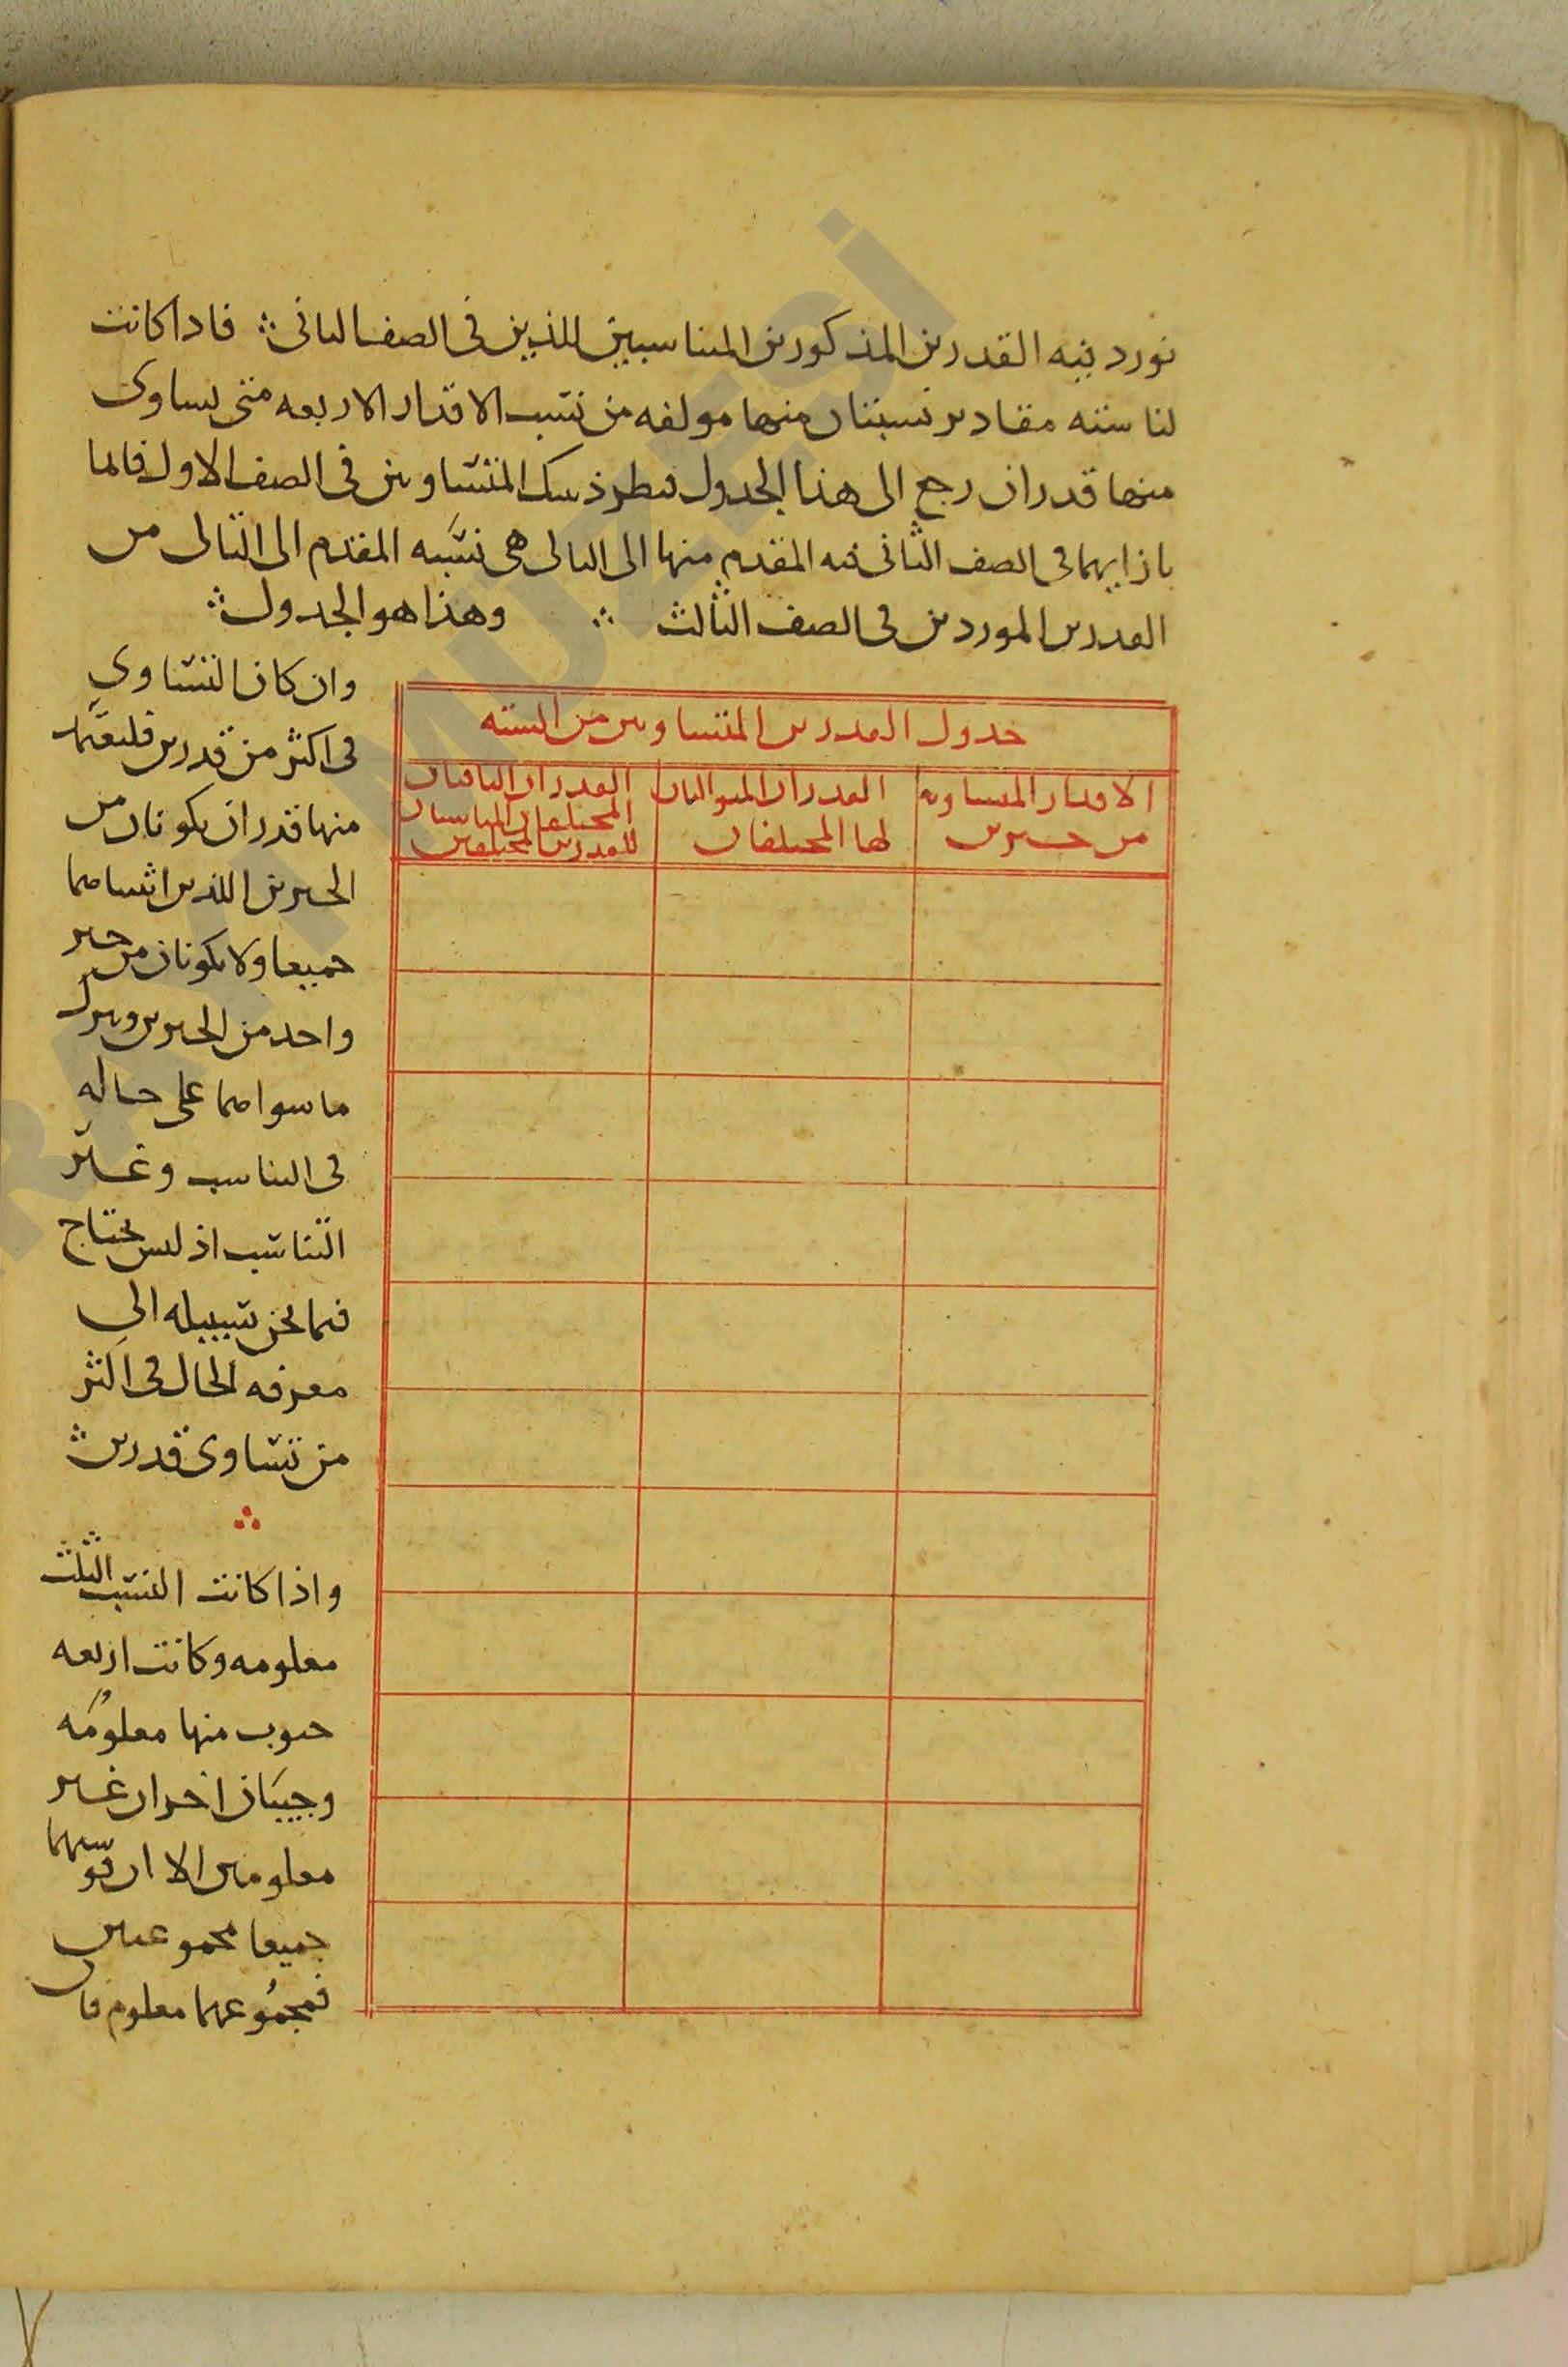 نورد فيه القدرين المذكورين المتناسبين اللذين في الصف الثاني ∴ فاذا كانت
لنا ستة مقادير نسبتان منها مولفه من نسب الاقدار الاربعه متى يساوى
منها قدران رجع الى هذا الجدول فطر ذينك المتساويين في الصف الاول فالما
بازايهما في الصف الثاني المقدم منها الى التالى هى نسبه المقدم الى التالى من
القدرين الموردين في الصف الثالث ∴ وهذا هو الجدول ∴
جدول القدرين المتساويين من الستة
الاقدار المتساويه
من حيزين
القدران المتواليان
لها المختلفان
القدران الباقيان
المختلفان المناسبان
للقدرين المختلفين
وان كان التساوي
في اكثر من قدرين
منها قدران يكونان من
الحيزين اللذين
جميعا ولا يكونان من حيز
واحد من الحيزين ويترك
ما سواهما على حاله
في التناسب وغير
التناسب اذ ليس يحتاج
فيما نحن بسبيله الى
معرفه الحال في اكثر
من تساوى قدرين ∴
∴
واذا كانت النسب الثلث
معلومه وكانت اربعه
جيوب منها معلومه
وجيبان اخران غير
معلومين الا ان قوسيهما
جميعا مجموعتين
فمجموعهما معلوم فان